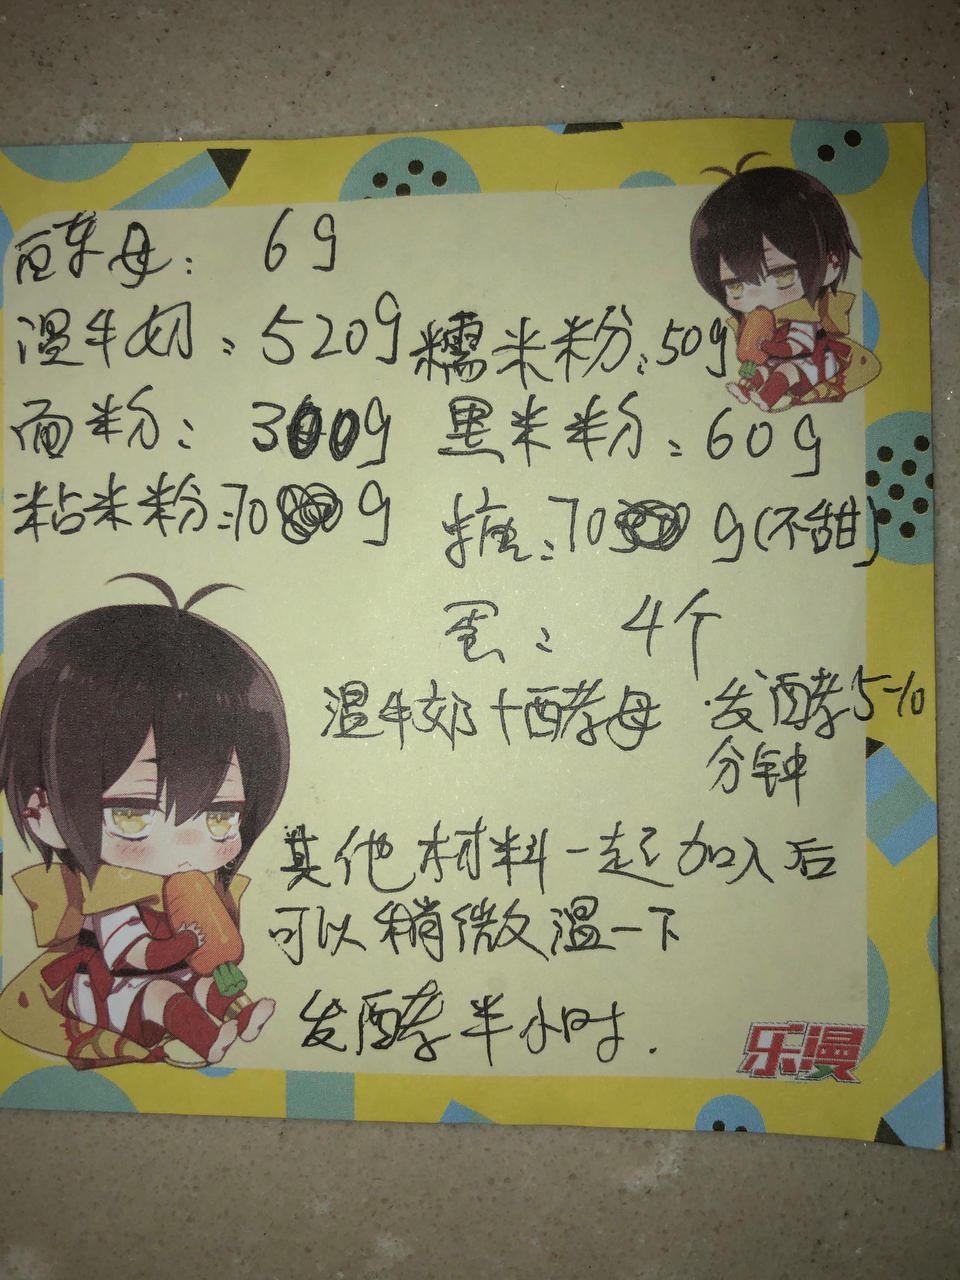 酵母：6g
温牛奶：520g 糯米粉：50g
面粉：300g 黑米粉：60g
粘米粉：70g 糖：70g(不甜)
蛋：4个
温牛奶+酵母 发酵5-10
分钟
其他材料一起加入后
可以稍微温一下
发酵半小时.
乐漫